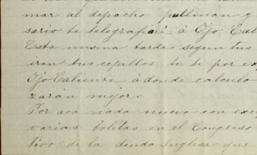 mar al depacho Pullman y
sario te telegrafiaré á Ojo Cal
Esta misma tarde segun tus
irán tus cepillos te te por ex
Ojo Caliente á donde calculo
zarán mejor.
Por acá nada nuevo con exce
varias bolitas en el Congreso
tivo de la deuda Inglesa que